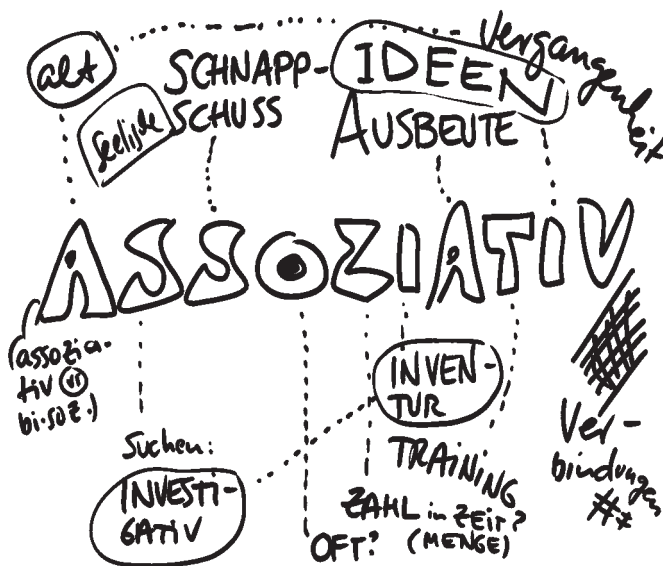 alt
SCHNAPP-
SCHUSS
IDEEN
AUSBEUTE
Vergangenheit
ASSOZIATIV
(assozia-
tiv vs
bi.soz.)
Suchen:
INVESTI-
GATIV
OFT?
INVEN-
TUR
TRAINING
ZAHL in ZEIT?
(MENGE)
Ver-
bindungen